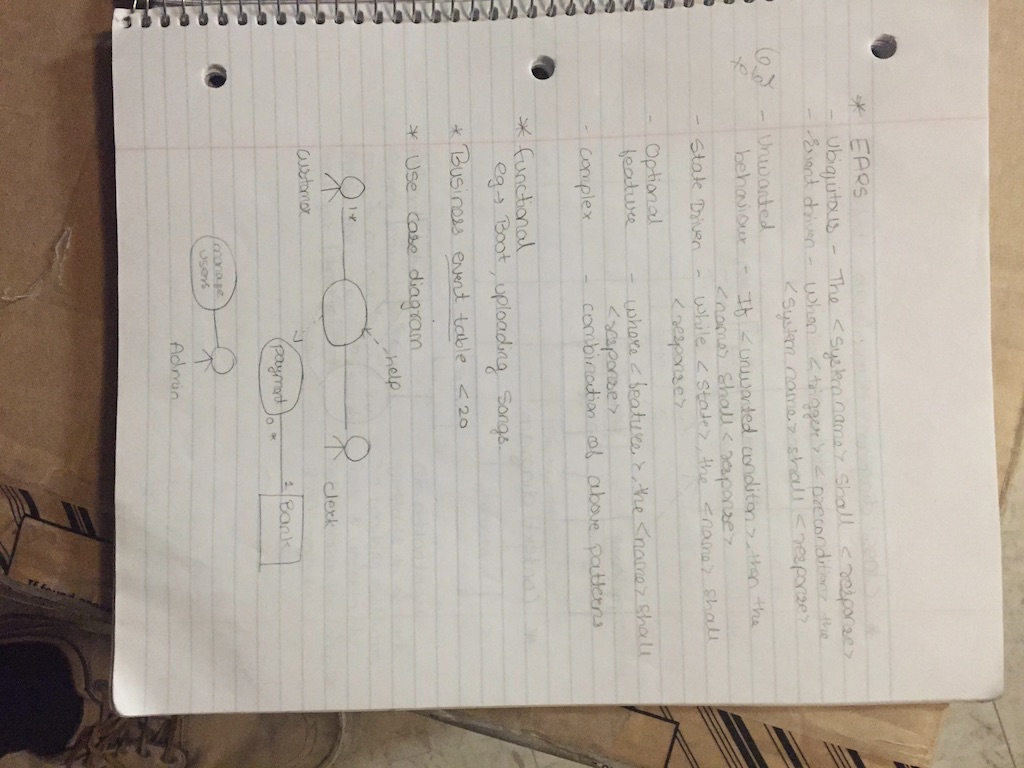 * EARS
- Ubiquitous - The <System name> Shall <response>
- Event driven - When <trigger> <precondition> the
<System name> shall <response>
- Unwanted
behaviour - If <unwanted condition>, then the
<name> shall <response>
- State Driven - while <state> the <name> shall
<response>
- Optional
feature - where <feature> the <name> shall
<response>
- complex - combination of above patterns
* functional
eg → Boot, uploading songs.
* Business event table < 20
* Use case diagram
help
1*
customer
clerk
payment 0* 1 Bank
manage
users
Admin